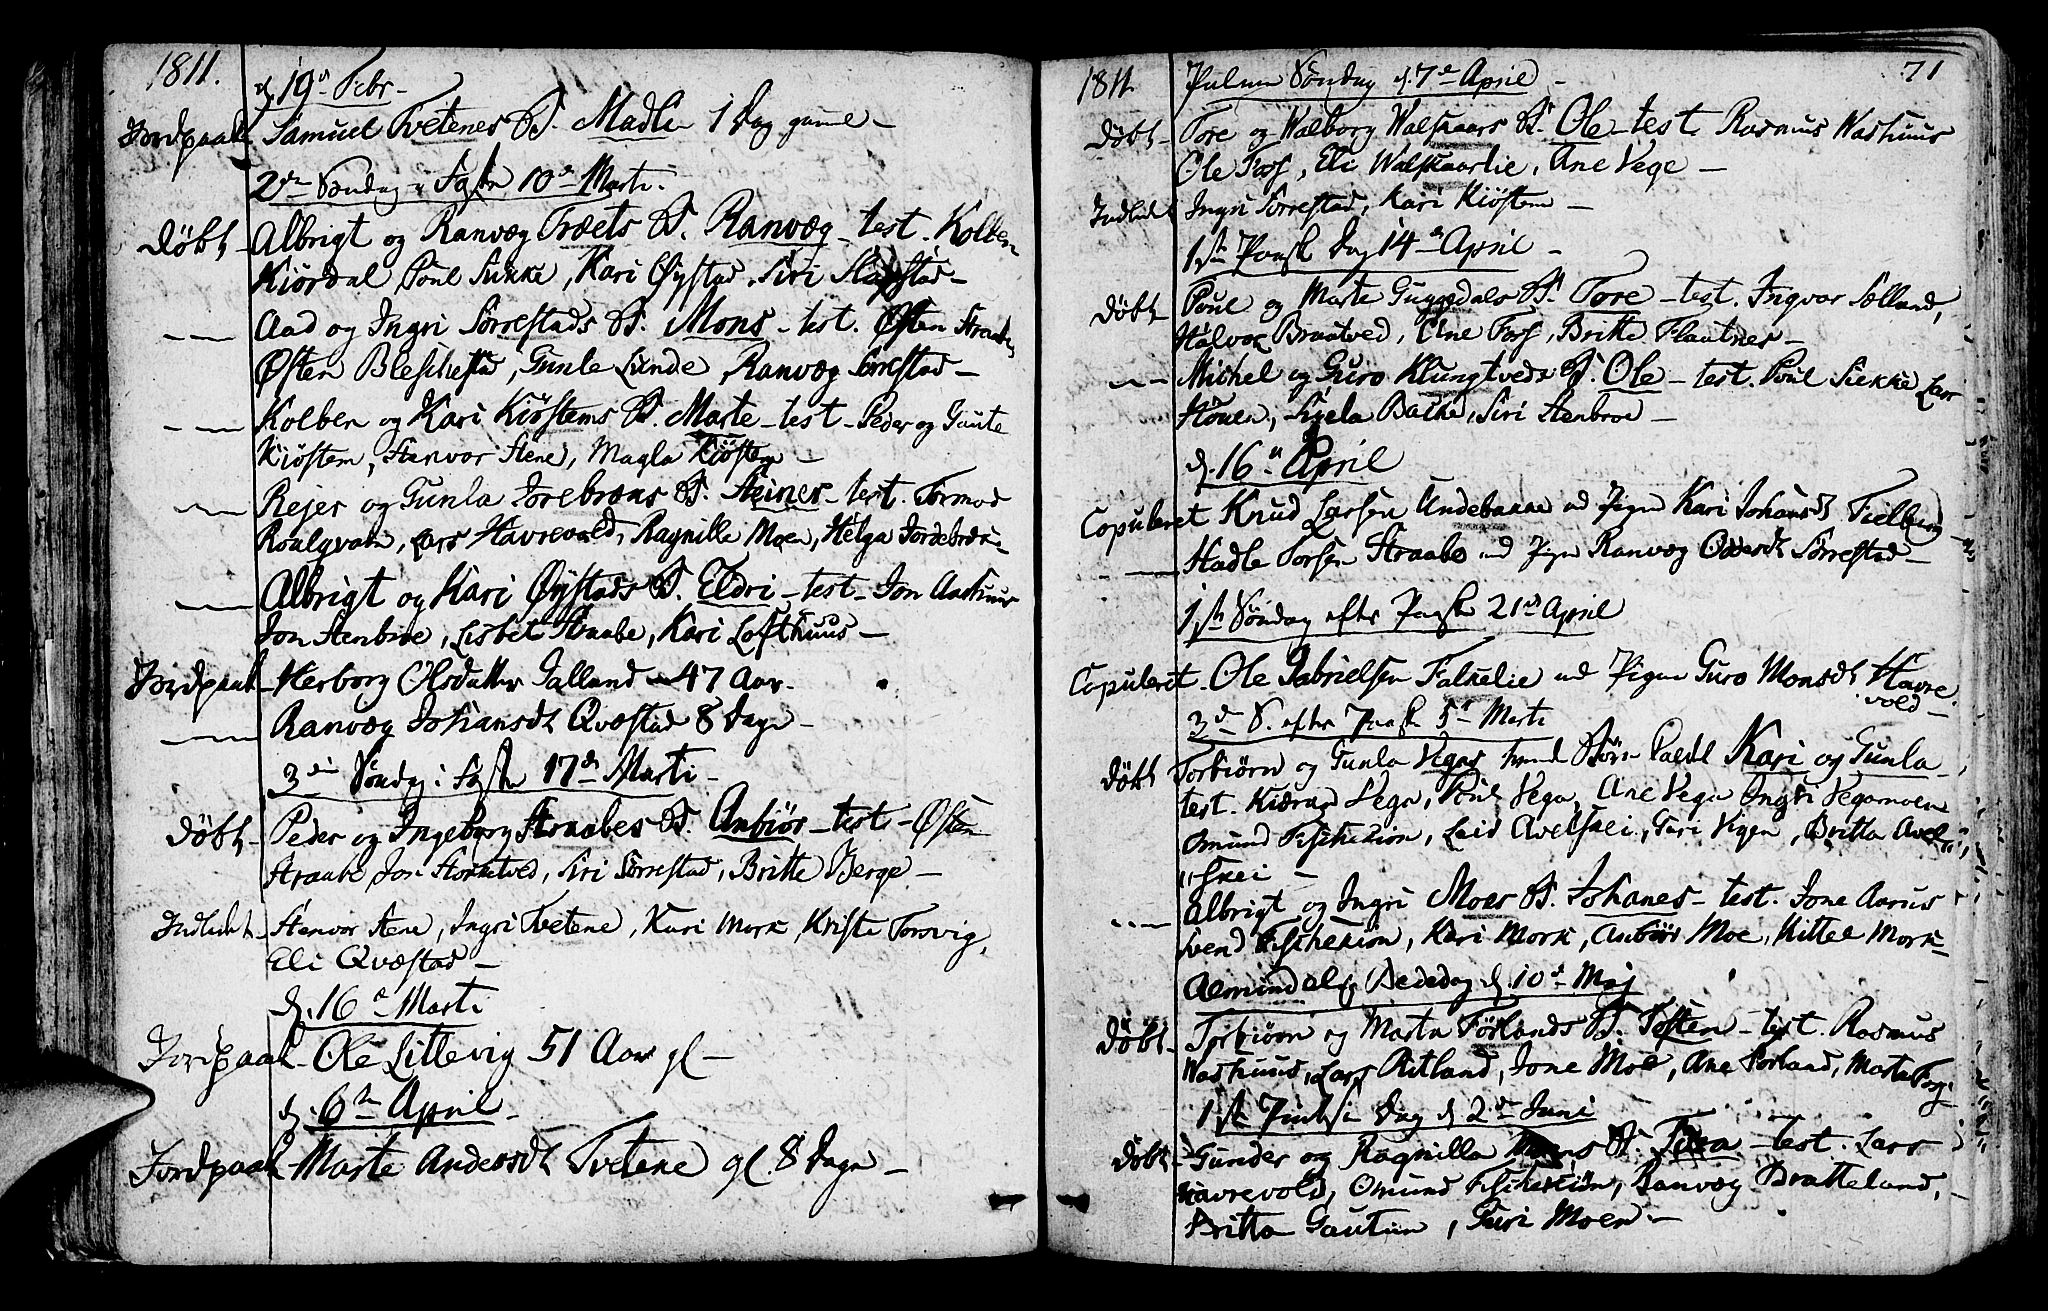 1811.
d. 19de Febr.
Jordpaak. Samuel Tvetenes B. Madle 1 Dag gaml
2den Søndag i Faste 10de Marti.
Døbt - Albrigt og Ranvæg Træets B. Ranvæg - test. Kolben
Kiørdal Poul Sukke, Kari Øystad, Siri
Aad og Ingri Sørrestads B. Mons - test. Østen Straabe
Østen Bleskestad, Gunle Lunde, Ranvæg Sørrestad -
Kolben og Kari Kiøstems B. Marte - test - Peder og Gaute
Kiøstem, Stenvor Stene, Magla Kiøstem -
Rejer og Gunla Jorebræns B. Steiner - test. Tormod
Roalqvam, Lars Havrevold, Ragnille Moen, Helga Jordebræn
Albrigt og Kari Øystads B. Eldri - test - Jon Aarhuus
Jon Stenbroe, Lisbet Straabe, Kari Lofthuus -
Jordpaak - Herborg Olsdatter Jalland - 47 Aar.
Ranvæg Johansdt Qvæstad 8 Dage -
3die Søndag i Faste 17de Marti -
Døbt - Peder og Ingeborg Straabes B. Anbiør - test - Østen
Straabe Jon Storketved, Siri Sørrestad, Britte Berge -
Indledt - Stenvor Stene, Ingri Tvetene, Kari Mork, Kriste Torsvig,
Eli Qvæstad -
d. 16de Marti
Jordpaak - Ole Littevig 51 Aar gl -
d. 6te April -
Jordpaak - Marte Andersdt Tvetene gl. 8 Dage -
1811. 71
Palme Søndag d. 7de April -
Døbt - Tore og Walborg Walskaars B. Ole - test. Rasmus Washuus
Ole Foss, Eli Walskaarlie, Ane Vege -
Indledt Ingri Sørrestad, Kari Kiøstem -
1ste Paaske Dag 14de April -
Døbt Poul og Marte Guggedals B. Tore - test. Ingvar Sælland,
Halvor Braatved, Ane Foss, Britte Flautnes -
Michel og Guro Klungtveds B. Ole - test. Poul Sukke Lars
Høuen, Siri Stenbroe -
d. 16de April
Copuleret Knud Larsen Undebakke med Pigen Kari Johansdt Fielberg
Hadle Torsen Straabe med Pigen Ranvæg Sørrestad -
1ste Søndag efter Paaske 21de April
Copuleret. Ole Gabrielsen Falkelie med Pigen Guro Monsdt Havre
vold -
3de S. efter Paaske 5te Marti
Døbt Torbiørn og Gunla Veges Kari og Gunla -
test. Vega, Poul Vega, Ane Vega Ingri Vegamoen
Omund Fischekiøn, Avelskei, Guri Vigen, Britta Avel
skei -
Albrigt og Ingri Moes B. Johanes - test. Jone Aarus
Svend Fischekiøn, Kari Mork, Anbiør Moe, Kittel Mork -
Almindelig Bededag d. 10de Maj
Døbt - Torbiørn og Marta Førlands B. Tosten - test. Rasmus
Washuus, Lars Ritland, Jone Moe, Ane Førland, Marte
1ste Pintse Dag d. 2den Juni
Døbt - Gunder og Ragnilla B. - test. Lars
Havrevold, Omund Fischekiøn, Ranvæg Bratteland,
Britta Gautun, Guri Moen -